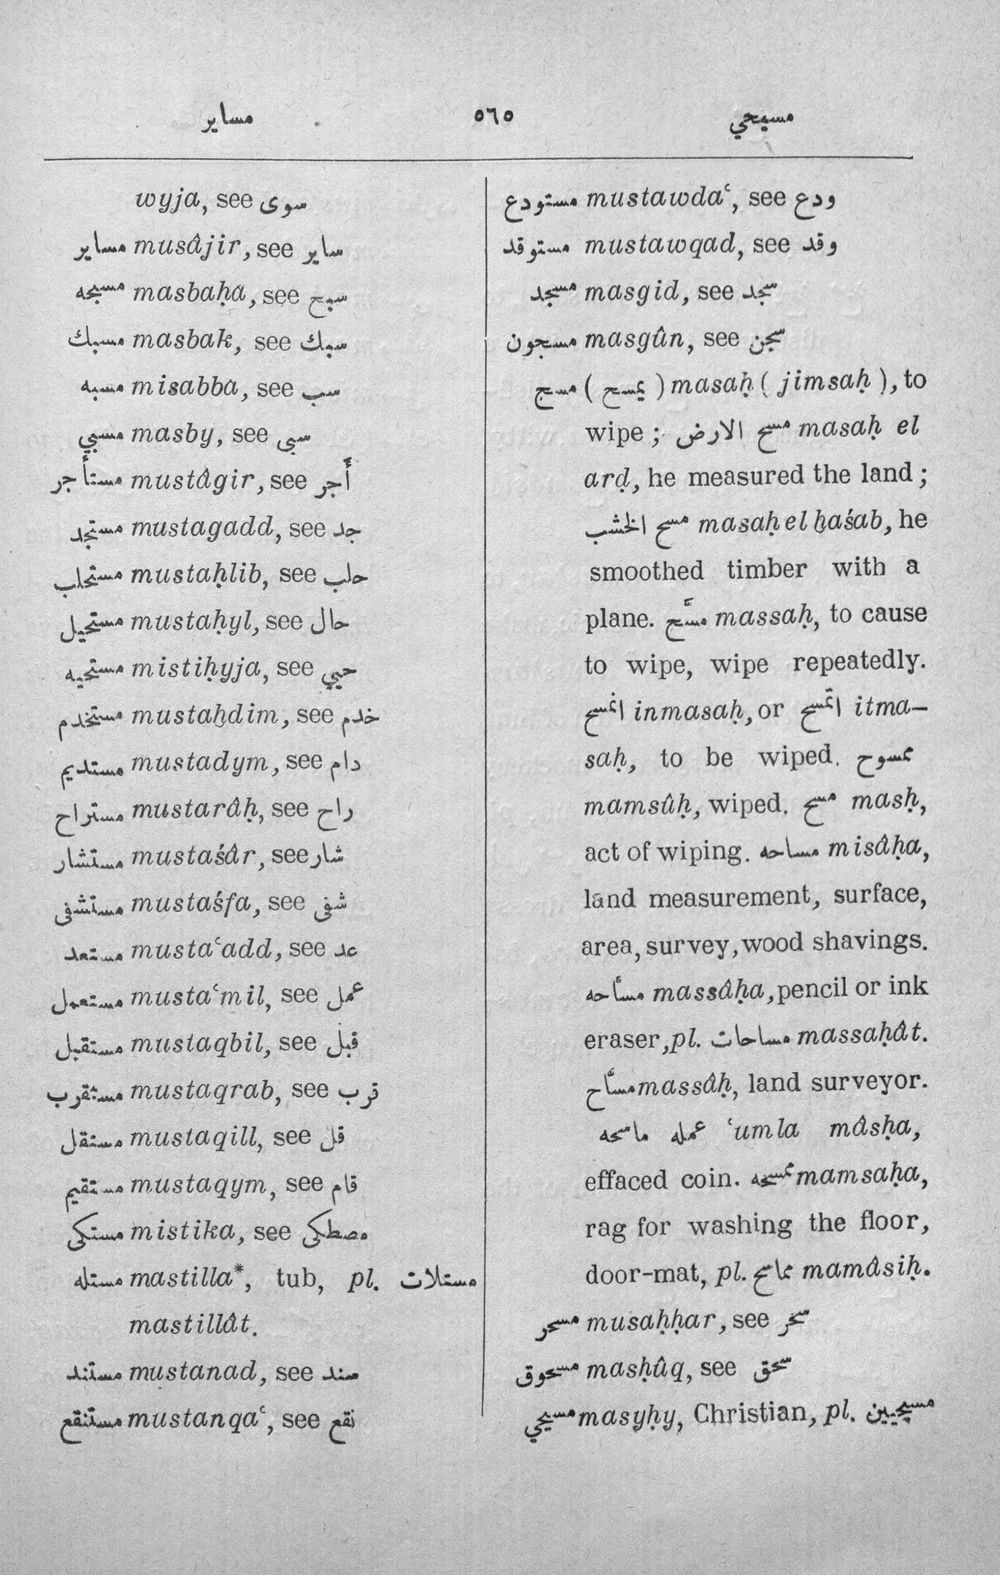 مساير ٥٦٥ مسيحي
wyja, see سوى
مساير musâjir, see ساير
مسبحه masbaḥa, see سبح
مسبك masbak, see سبك
مسبه misabba, see سب
مسبي masby, see سبى
مستأجر mustâgir, see أجر
مستجد mustagadd, see جد
مستحلب mustaḥlib, see حلب
مستحيل mustaḥyl, see حال
مستحيه mistiḥyja, see حيي
مستخدم mustaḫdim, see خدم
مستديم mustadym, see دام
مستراح mustarâḥ, see راح
مستشار mustaśâr, see شار
مستشفى mustaśfa, see شفى
مستعد musta‘add, see عد
مستعمل musta‘mil, see عمل
مستقبل mustaqbil, see قبل
مستقرب mustaqrab, see قرب
مستقل mustaqill, see قل
مستقيم mustaqym, see قام
مستكى mistika, see مصطكى
مستله mastilla*, tub, pl. مستلات
mastillât.
مستند mustanad, see سند
مستنقع mustanqa‘, see نقع
مستودع mustawda‘, see ودع
مستوقد mustawqad, see وقد
مسجد masgid, see سجد
مسجون masgûn, see سجن
مسح ( يمسح ) masaḥ ( jimsaḥ ), to
wipe ; مسح الارض masaḥ el
arḍ, he measured the land ;
مسح الخشب masaḥ el ḫaśab, he
smoothed timber with a
plane. مسّح massaḥ, to cause
to wipe, wipe repeatedly.
انمسح inmasaḥ, or اتمسح itma-
saḥ, to be wiped. ممسوح
mamsûḥ, wiped. مسح masḥ,
act of wiping. مساحه misâḥa,
land measurement, surface,
area, survey, wood shavings.
مسّاحه massâḥa, pencil or ink
eraser, pl. مساحات massaḥât.
مسّاح massâḥ, land surveyor.
عمله ماسحه ‘umla mâsḥa,
effaced coin. ممسحه mamsaḥa,
rag for washing the floor,
door-mat, pl. مماسح mamâsiḥ.
مسحر musaḥḥar, see سحر
مسحوق masḥûq, see سحق
مسيحي masyḥy, Christian, pl. مسيحيين